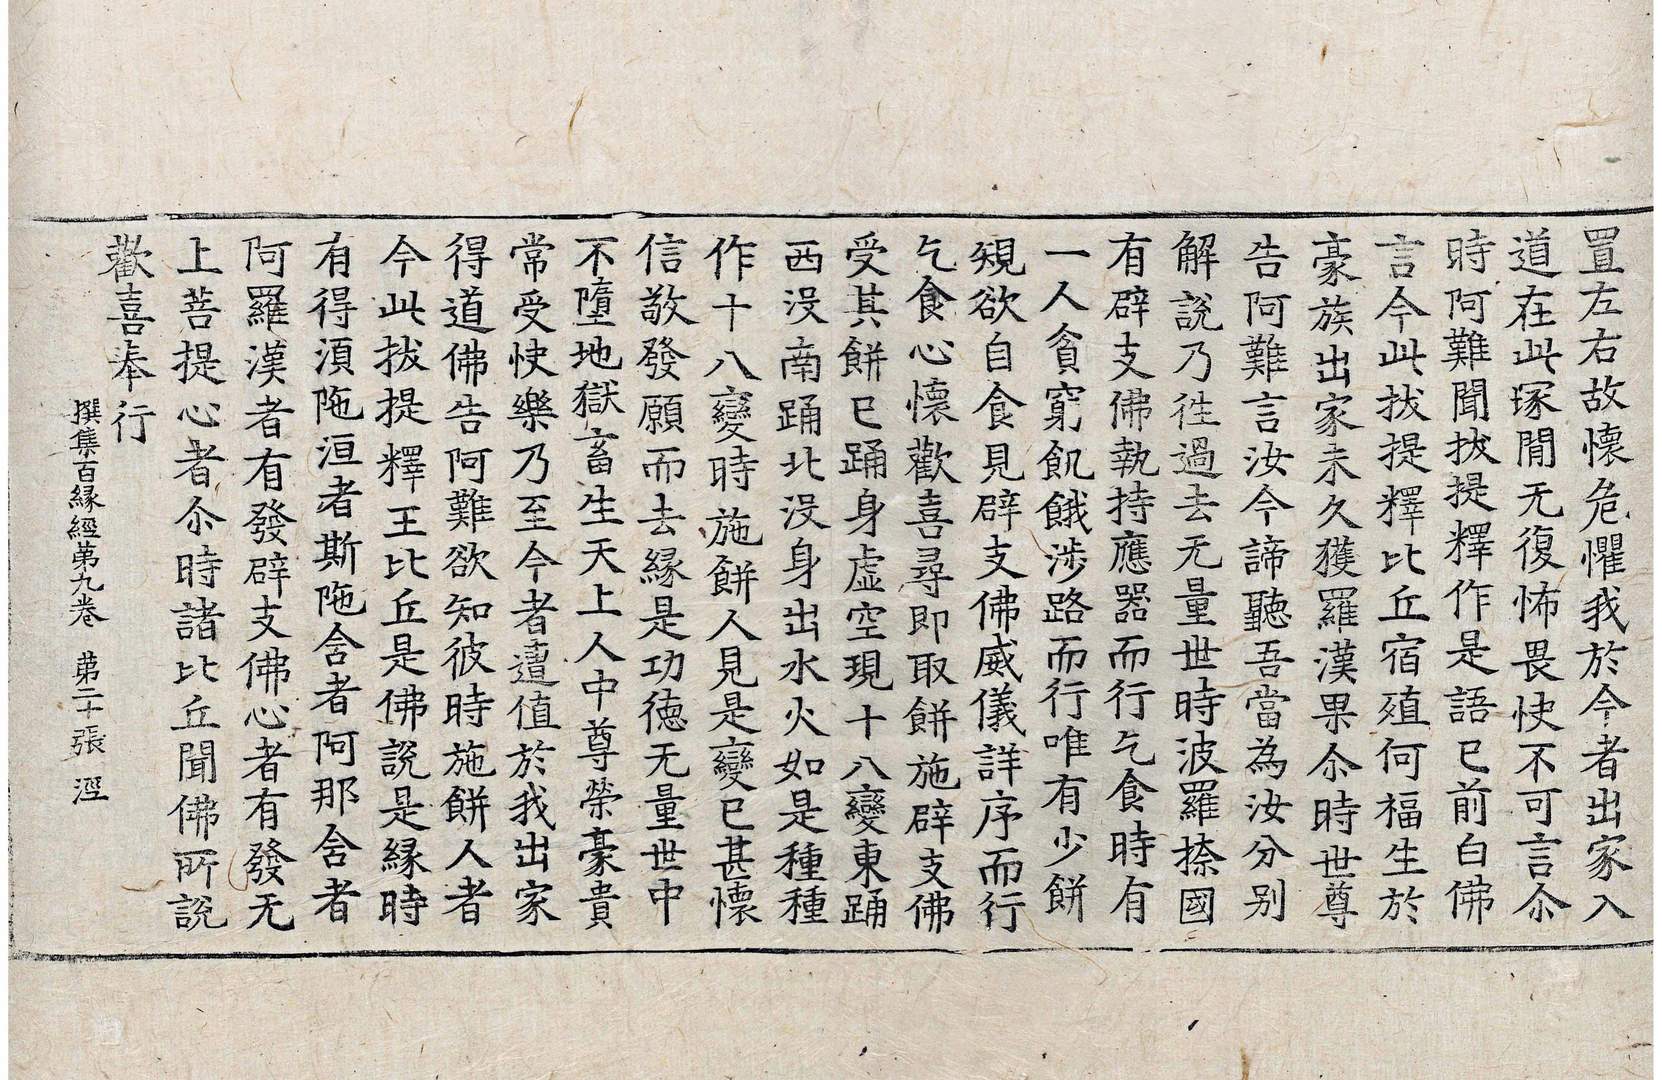 置左右故懷危懼我於今者出家入
道在此塚間无復怖畏快不可言尒
時阿難聞拔提釋作是語已前白佛
言今此拔提釋比丘宿殖何福生於
豪族出家未久獲羅漢果尒時世尊
告阿難言汝今諦聽吾當為汝分别
解說乃徃過去无量世時波羅㮈國
有辟支佛執持應器而行乞食時有
一人貧窮飢餓涉路而行唯有少餅
規欲自食見辟支佛威儀詳序而行
乞食心懷歡喜尋即取餅施辟支佛
受其餅已踊身虛空現十八變東踊
西没南踊北没身出水火如是種種
作十八變時施餅人見是變已甚懷
信敬發願而去緣是功德无量世中
不墮地獄畜生天上人中尊榮豪貴
常受快樂乃至今者遭值於我出家
得道佛告阿難欲知彼時施餅人者
今此拔提釋王比丘是佛說是緣時
有得湏陁洹者斯陁含者阿那含者
阿羅漢者有發辟支佛心者有發无
上菩提心者尒時諸比丘聞佛所說
歡喜奉行
撰集百緣經第九卷　第二十張　溼